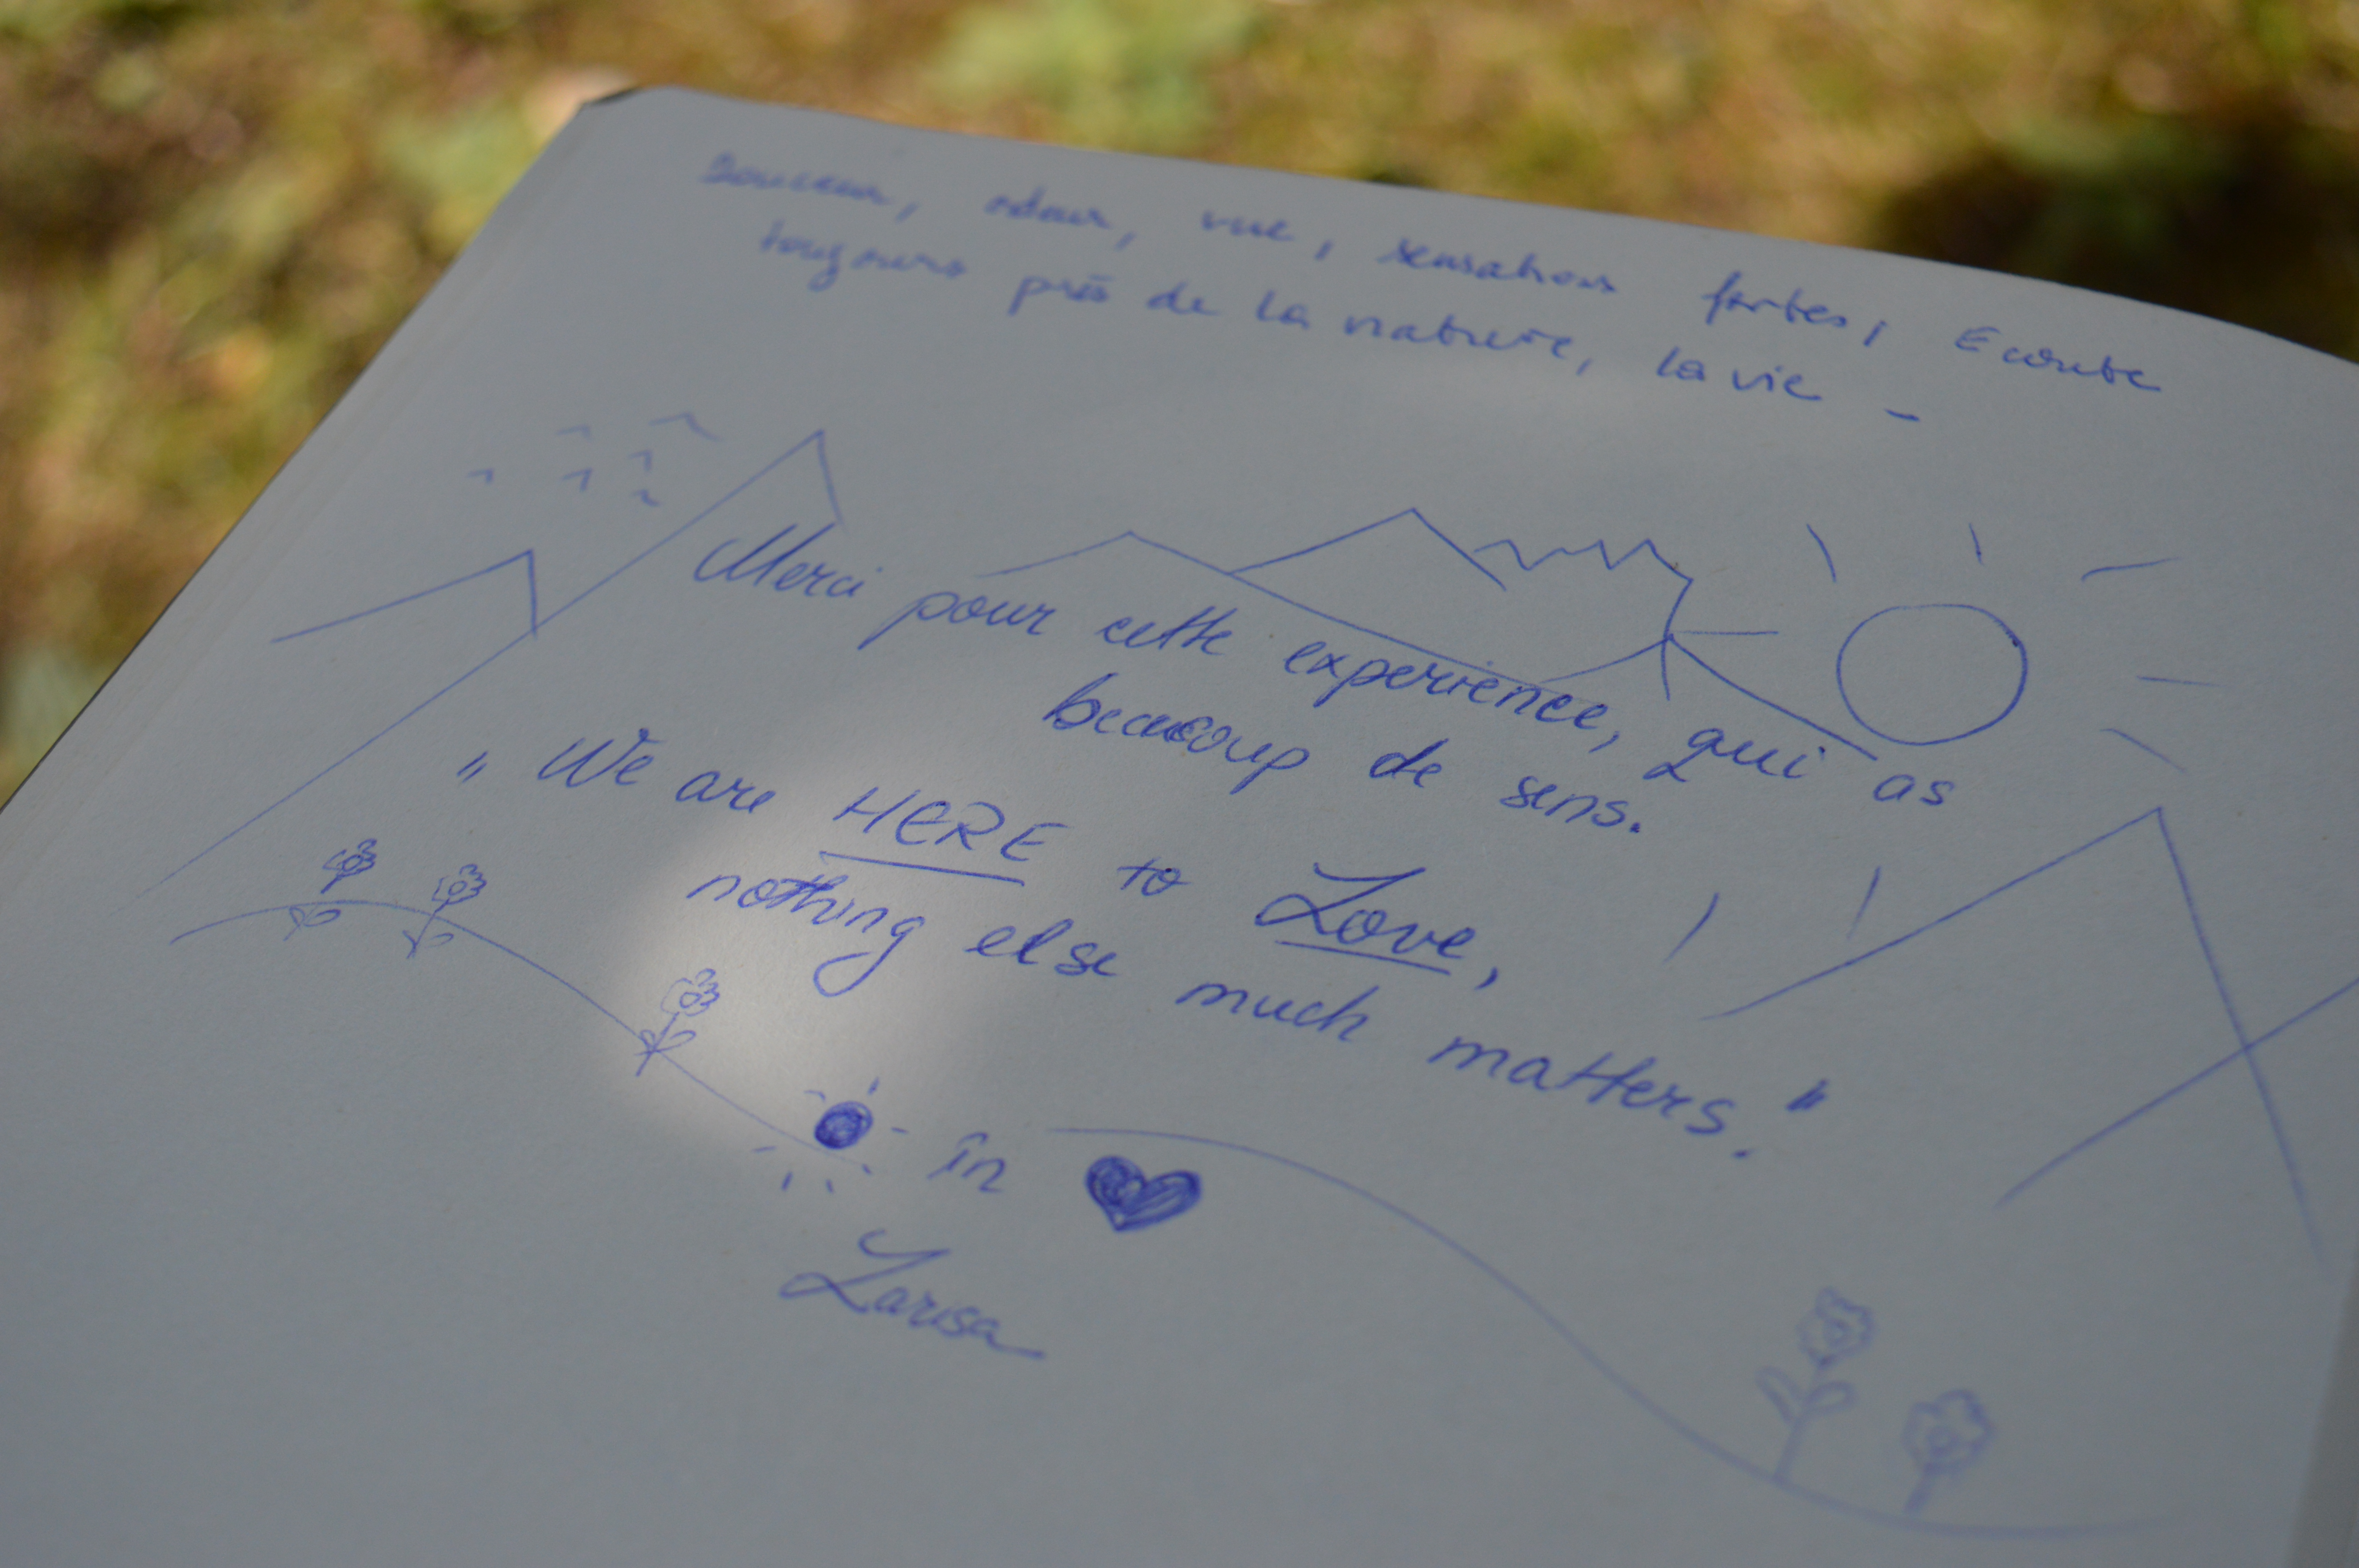 Douceur, odeur, vue, sensations fortes, Ecoute
toujours près de la nature, la vie -
Merci pour cette experience, qui as
beaucoup de sens.
„ We are HERE to Love,
nothing else much matters."
în
Larisa